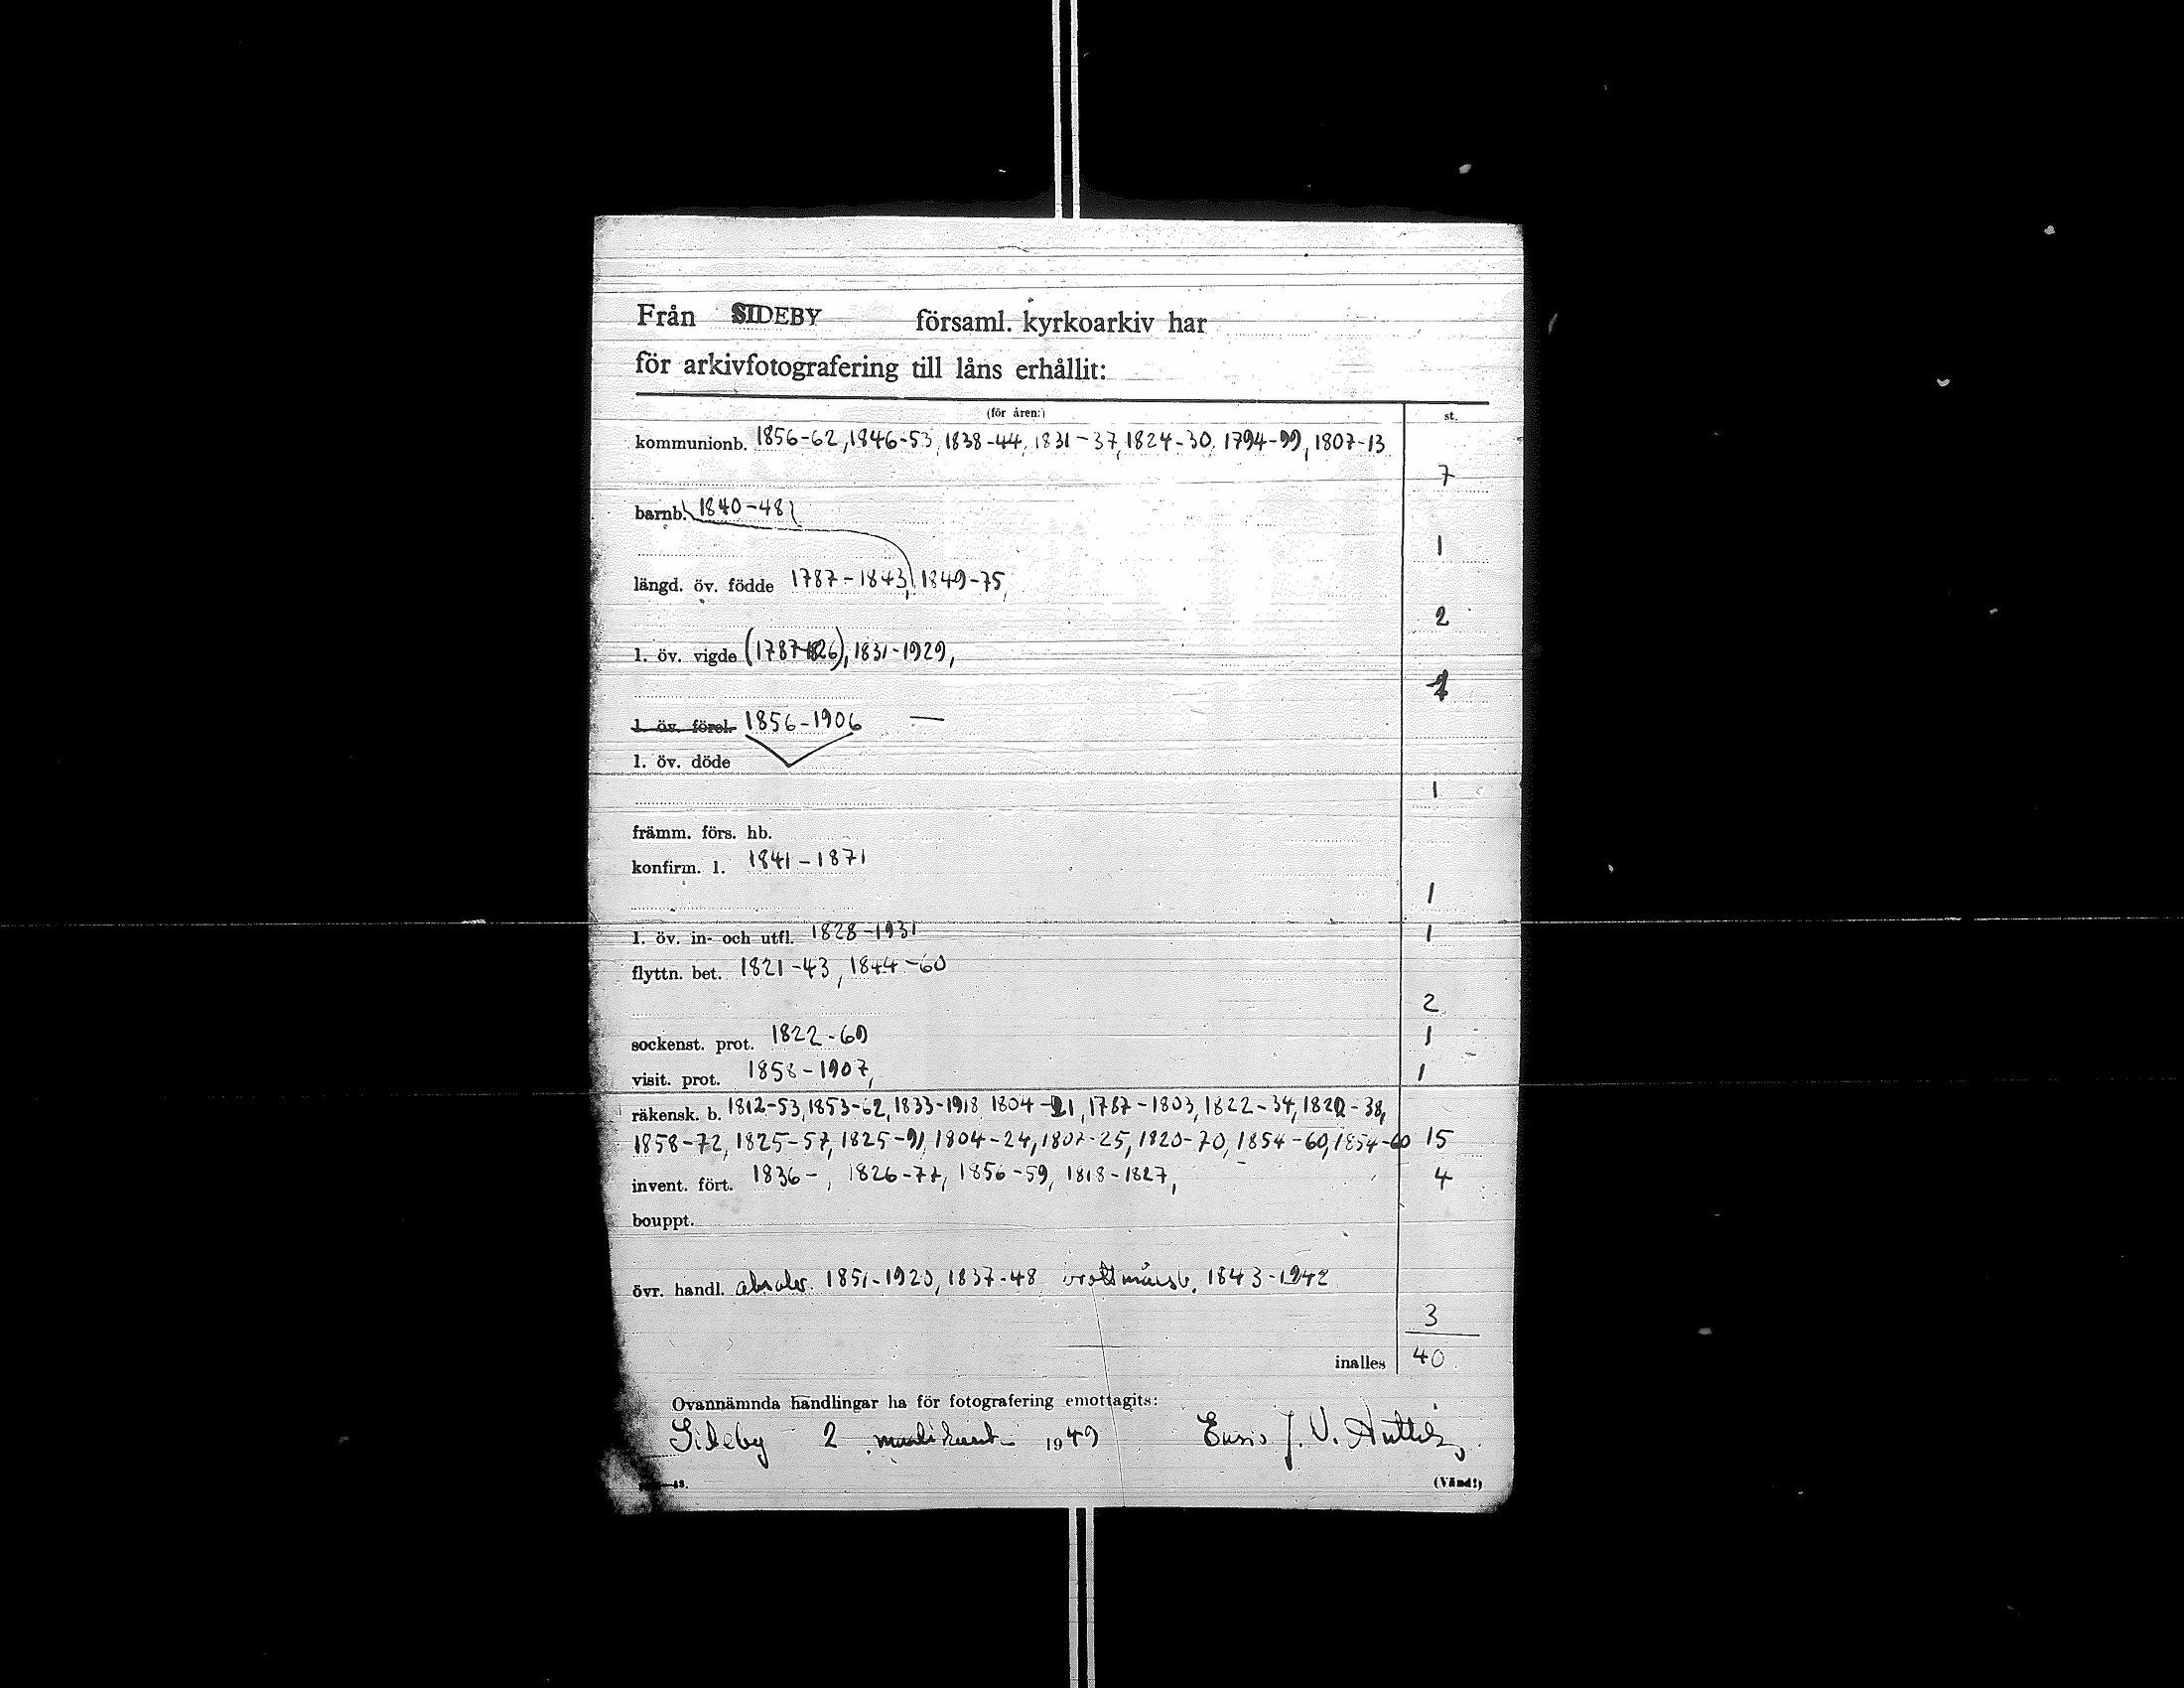 Från SIDEBY församl. kyrkoarkiv har
för arkivfotografering till låns erhållit:
(för åren:) st.
kommunionb. 1856-62, 1846-53, 1838-44, 1831-37, 1824-30, 1794-99, 1807-13
7
barnb. 1840-48
1
längd. öv. födde 1787-1843, 1849-75,
2
l. öv. vigde (1787-1826), 1831-1929,
1
l. öv. förel. 1856-1906 —
l. öv. döde
1
främm. förs. hb.
konfirm. l. 1841-1871
1
l. öv. in- och utfl. 1828-1931 1
flyttn. bet. 1821-43, 1844-60
2
sockenst. prot. 1822-69 1
visit. prot. 1858-1907, 1
räkensk. b. 1812-53, 1853-62, 1833-1918, 1804-21, 1787-1803, 1822-34, 1820-38,
1858-72, 1825-57, 1825-91, 1804-24, 1807-25, 1820-70, 1854-60, 1854-60 15
invent. fört. 1836- , 1826-77, 1856-59, 1818-1827, 4
bouppt.
övr. handl. 1851-1920, 1837-48 1843-1942
3
inalles 40
Ovannämnda handlingar ha för fotografering emottagits:
Sideby 2 1949 J. V.
(Vänd!)